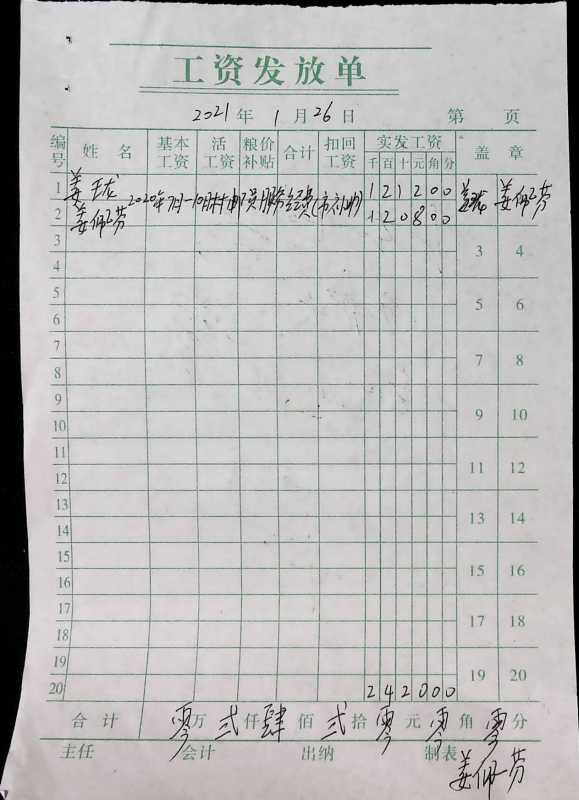 工资发放单
2021年 1月26日 第 页
编号 姓名 基本工资 活工资 粮价补贴 合计 扣回工资 实发工资 千百十元角分 盖章
1 姜玉龙 2020年7月-10月 服务经费(市补助) 1 2 1 2 0 0 姜玉龙 姜佩芬
2 姜佩芬 1 2 0 8 0 0
3 3 4
4
5 5 6
6
7 7 8
8
9 9 10
10
11 11 12
12
13 13 14
14
15 15 16
16
17 17 18
18
19 19 20
20 2 4 2 0 0 0
合计 零万贰仟肆佰贰拾零元零角零分
主任 会计 出纳 制表 姜佩芬